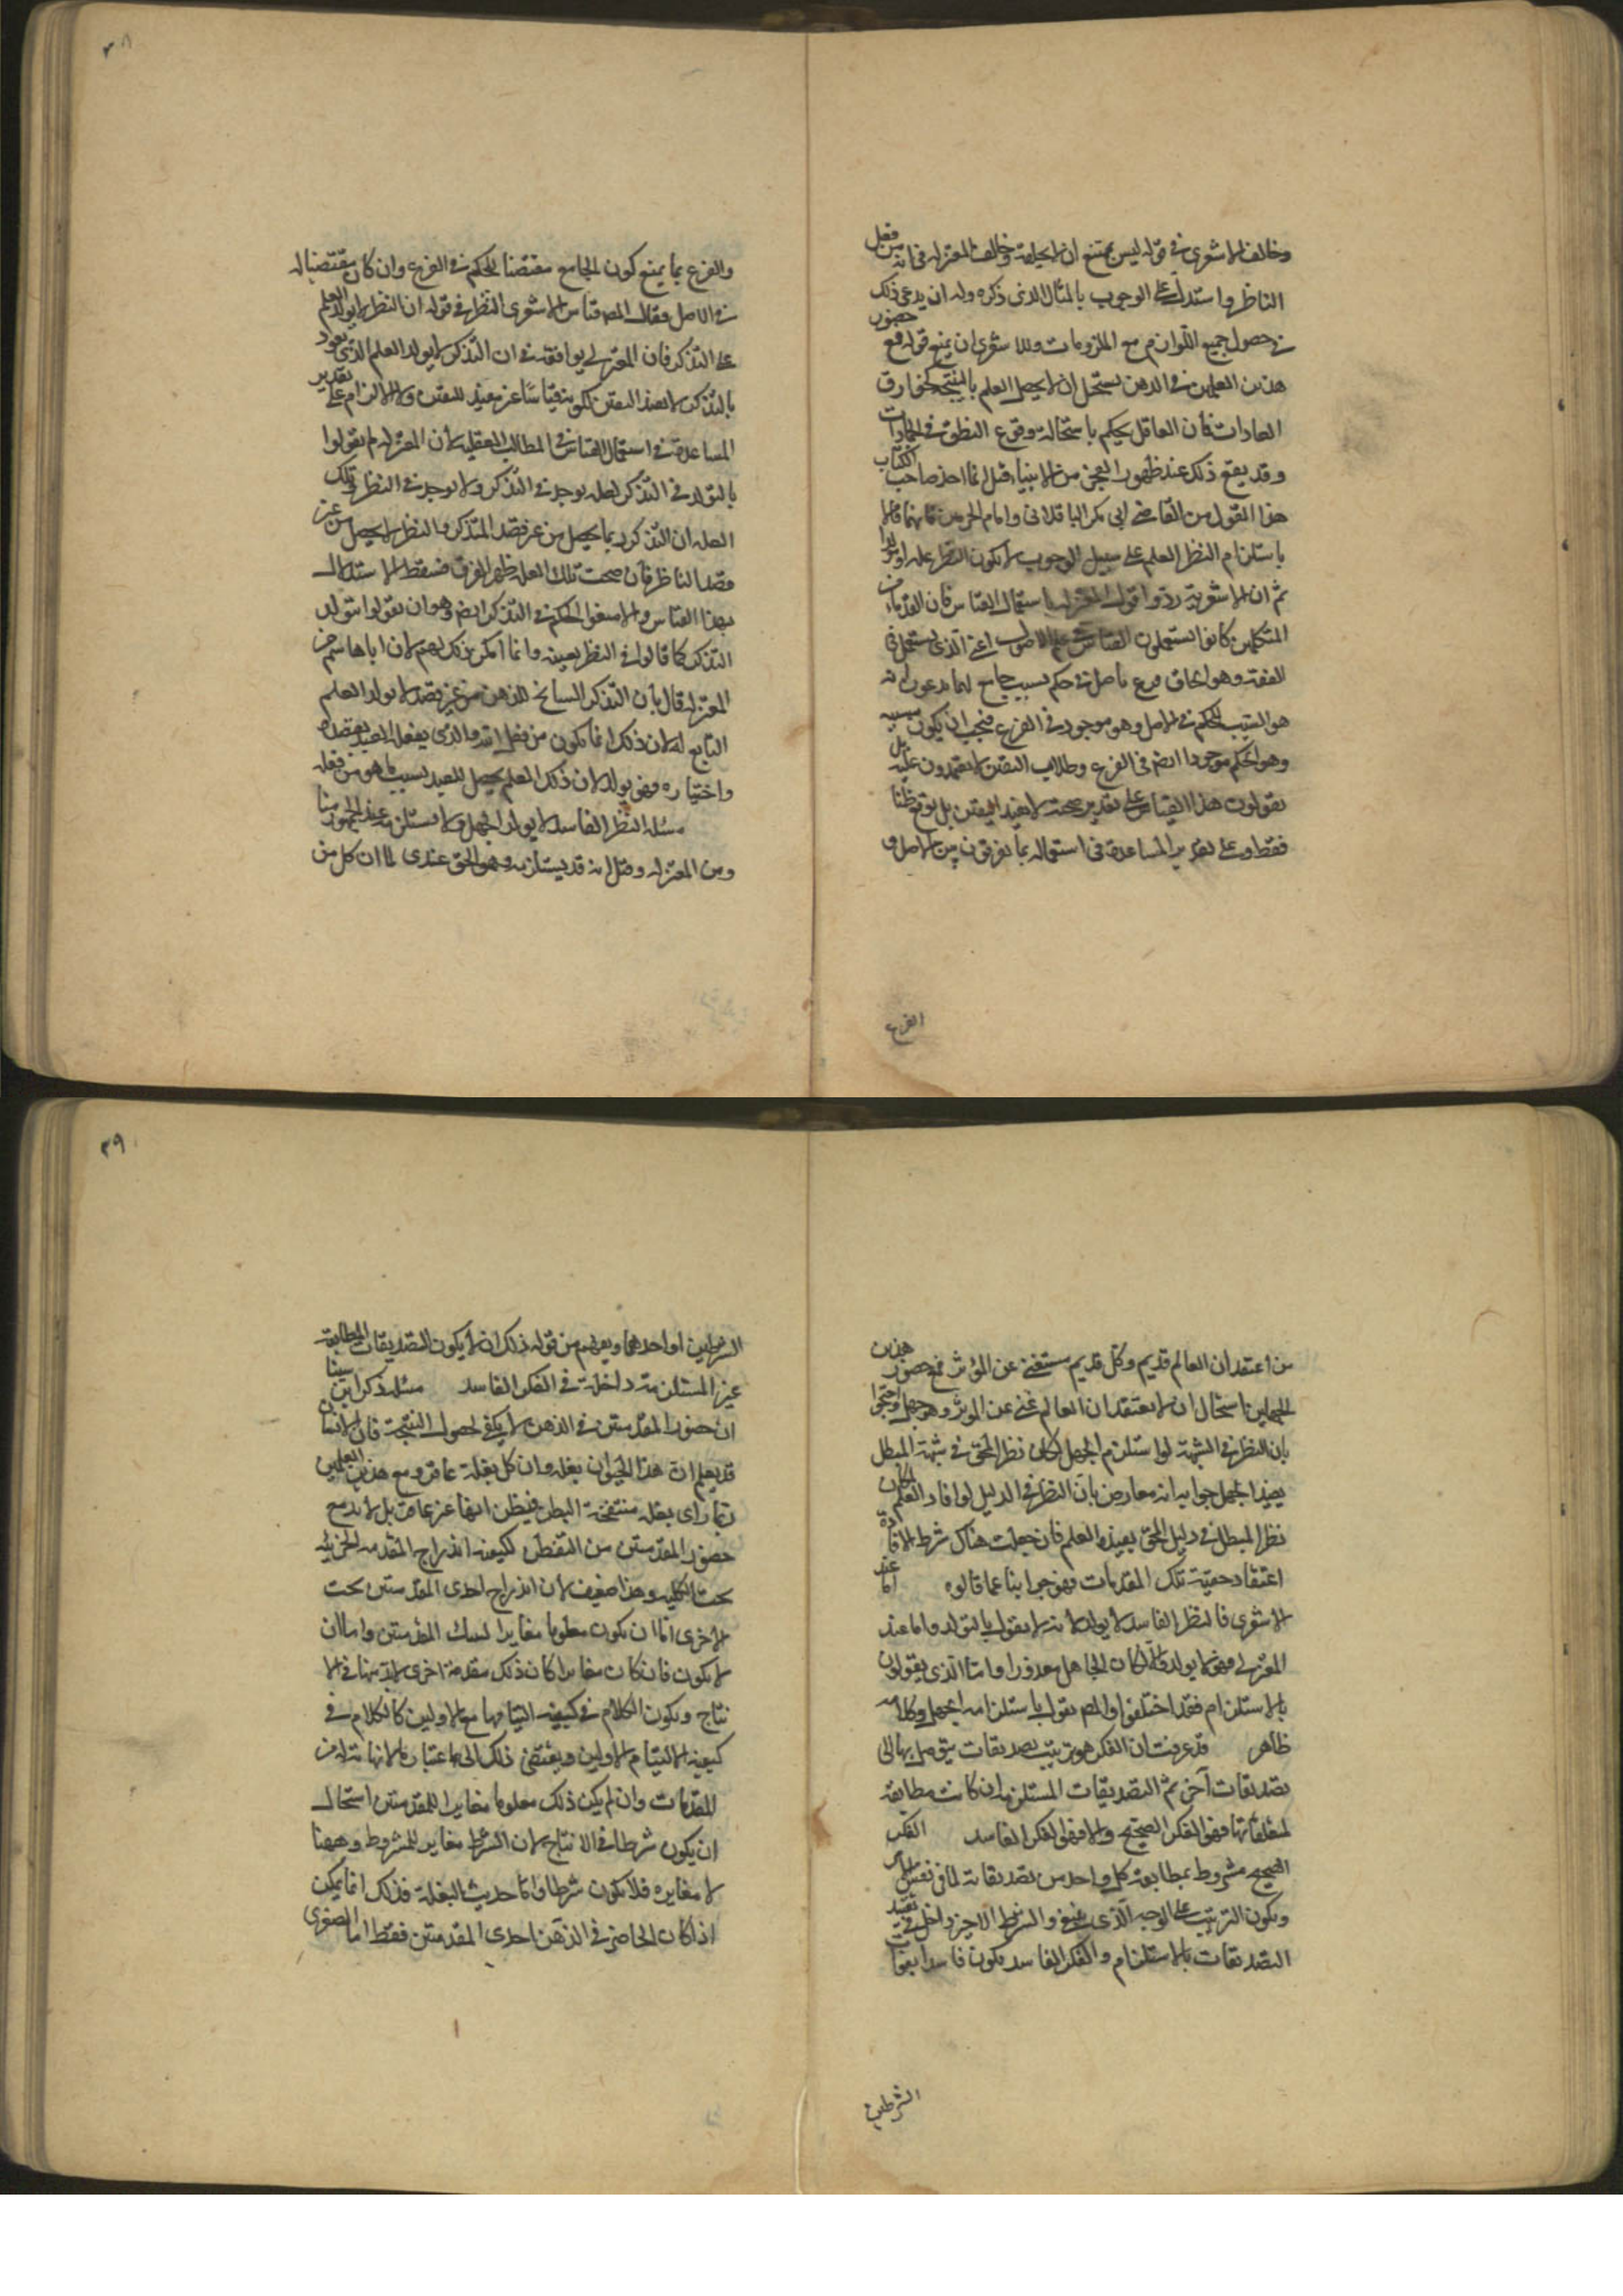 ٣٨
وخالف الاشعری فی قوله لیس بممتنع ان لا یخلقه وخالف المعتزله فی انه من فعل
الناظر واستدل علی الوجوب بالمثال الذی ذکره وله ان یدعی ذلک
فی حصول جمیع اللوازم مع الملزومات وللاشعری ان یمنع قوله مع حضور
هذین العلمین فی الذهن یستحیل ان لا یحصل العلم بالنتیجة کخوارق
العادات فان العاقل یحکم باستحالة وقوع النطق فی الجمادات
وقد یقع ذلک عند ظهور المعجز من الانبیاء قیل انما اخذ صاحب الکتاب
هذا القول من القاضی ابی بکر الباقلانی وامام الحرمین فانهما قالا
باستلزام النظر العلم علی سبیل الوجوب لا بکون النظر علة او مولدا
ثم ان الاشعریة ردّوا قول المعتزلة باستعمال القیاس فان القدماء من
المتکلمین کانوا یستعملون القیاس اعنی الذی یستعمل فی
الفقه وهو الحاق فرع باصل فی حکم بسبب جامع لهما یدعون انه
هو السبب للحکم فی الاصل وهو موجود فی الفرع فیجب ان یکون مسببه
وهو الحکم موجودا ایضا فی الفرع وطلاب الیقین لا یعتمدون علیه بل
یقولون هذا القیاس علی تقدیر صحته لا یفید الیقین بل یوقع ظنا
فقط وعلی تقدیر المساعدة فی استعماله بما یفرقون بین الاصل و
الفرع
والفرع بما یمنع کون الجامع مقتضیا للحکم فی الفرع وان کان مقتضیا له
فی الاصل فقال المص قیاس الاشعری النظر فی قوله ان النظر لا یولد العلم
علی التذکر فان المعتزلی یوافقه فی ان التذکر لا یولد العلم الذی یعود
بالتذکر لا یفید الیقین لکونه قیاسا غیر مفید للیقین ولا الالزام علی تقدیر
المساعدة فی استعمال القیاس فی المطالب العقلیة لان المعتزلة لم یقولوا
بالتولد فی التذکر لعلة یوجد فی التذکر ولا یوجد فی النظر وتلک
العلة ان التذکر ربما یحصل من غیر قصد المتذکر والنظر لا یحصل من غیر
قصد الناظر فان صحت تلک العلة ظهر الفرق فسقط الاستدلال
بهذا القیاس والا منعوا الحکم فی التذکر ایضا وهو ان یقولوا بتولد
التذکر کما قالوا فی النظر بعینه وانما امکن ذلک لهم لان ابا هاشم من
المعتزلة قال بان التذکر السانح للذهن من غیر قصد لا یولد العلم
التابع له لان ذلک انما یکون من فعل الله والذی یفعله العبد بقصده
واختیاره فهو یولد لان ذلک العلم یحصل للعبد بسبب ما هو من فعله
مسئلة النظر الفاسد لا یولد الجهل ولا یستلزمه عند الجمهور منا
ومن المعتزلة وقیل انه قد یستلزمه وهو الحق عندی لما ان کل من
٣٩
من اعتقد ان العالم قدیم وکل قدیم مستغن عن المؤثر فمع حضور هذین
الجهلین استحال ان لا یعتقد ان العالم غنی عن المؤثر وهو جهل واحتجوا
بان النظر فی الشبهة لو استلزم الجهل لکان نظر المحق فی شبهة المبطل
یفید الجهل جوابه انه معارض بان النظر فی الدلیل لو افاد العلم لکان
نظر المبطل فی دلیل المحق یفیده العلم فان جعلت هناک شرط الافادة
اعتقاد حقیة تلک المقدمات فهو جوابنا عما قالوه اما عند
الاشعری فالنظر الفاسد لا یولد لانه لا یقول بالتولد واما عند
المعتزلی فهو لا یولد والا لکان الجاهل معذورا واما الذی یقولون
بالاستلزام فقد اختلفوا والمص یقول باستلزامه الجهل وکلامه
ظاهر قد عرفت ان الفکر هو ترتیب تصدیقات یتوصل بها الی
تصدیقات آخر ثم التصدیقات المستلزمة ان کانت مطابقة
لمتعلقاتها فهو الفکر الصحیح والا فهو الفکر الفاسد الفکر
الصحیح مشروط بمطابقة کل واحد من تصدیقاته لما فی نفس الامر
وبکون الترتیب علی الوجه الذی ینبغی والشرط الاخیر داخل فی تقیید
التصدیقات بالاستلزام والفکر الفاسد یکون فاسدا بفوات
الشرطین
الشرطین او احدهما ویفهم من قوله ذلک ان لا یکون التصدیقات المطابقة
غیر المستلزمة داخلة فی الفکر الفاسد مسئلة ذکر ابن سینا
ان حضور المقدمتین فی الذهن لا یکفی لحصول النتیجة فان الانسان
قد یعلم ان هذا الحیوان بغلة وان کل بغلة عاقر ومع هذین العلمین
ربما رای بغلة منتفخة البطن فیظن انها غیر عاقر بل لابد مع
حضور المقدمتین من التفطن لکیفیة اندراج المقدمة الجزئیة
تحت الکلیة وهذا ضعیف لان اندراج احدی المقدمتین تحت
الاخری اما ان یکون معلوما مغایرا لتلک المقدمتین واما ان
لا یکون فان کان مغایرا کان ذلک مقدمة اخری لابد منها فی الا
نتاج ویکون الکلام فی کیفیة التیامها مع الاولیین کالکلام فی
کیفیة الالتیام الاولیین ویفضی ذلک الی اعتبار ما لا نهایة له من
المقدمات وان لم یکن ذلک معلوما مغایرا للمقدمتین استحال
ان یکون شرطا فی الانتاج لان الشرط مغایر للمشروط وههنا
لا مغایرة فلا یکون شرطا واما حدیث البغلة فذلک انما یمکن
اذا کان الحاضر فی الذهن احدی المقدمتین فقط اما الصغری